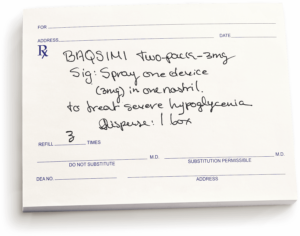 FOR
ADDRESS DATE
Rx BAQSIMI Two-pack-3mg
Sig: Spray one device
(3mg) in one nostril.
to treat severe hypoglycemia
Dispense: 1 box
REFILL 3 TIMES
M.D. M.D.
DO NOT SUBSTITUTE SUBSTITUTION PERMISSIBLE
DEA NO. ADDRESS